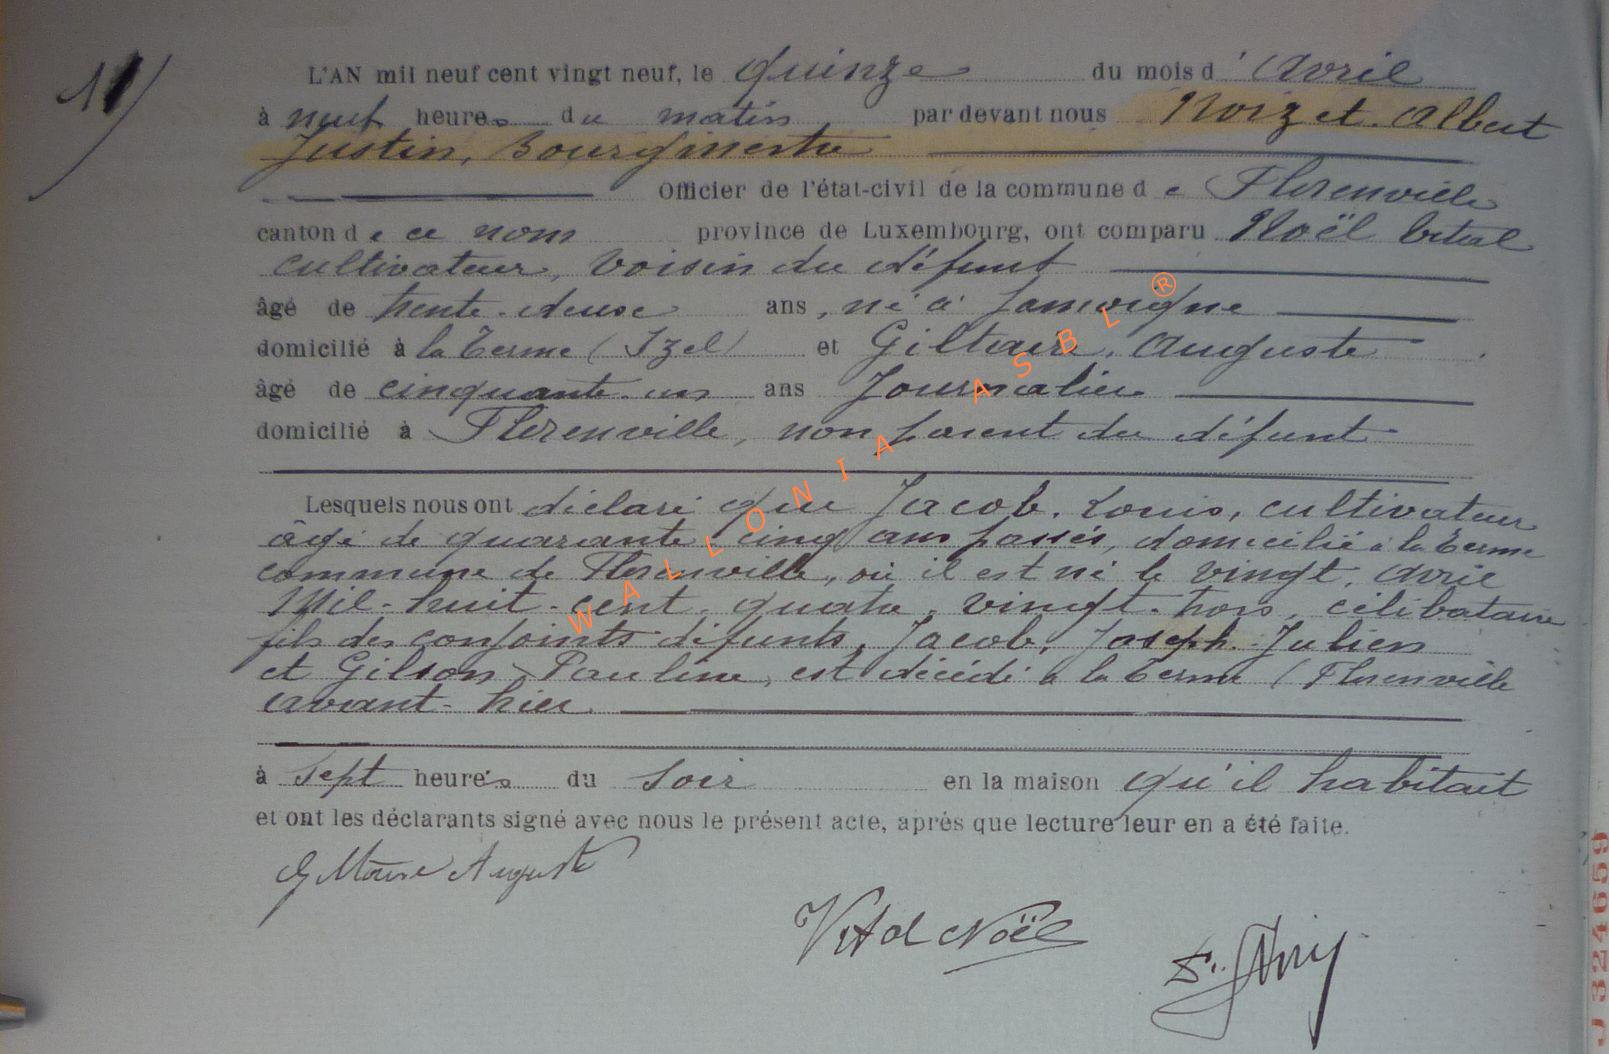 11/
L'AN mil neuf cent vingt neuf, le quinze du mois d'Avril
à neuf heures du matin par devant nous Noizet Albert
Justin, Bourgmestre
Officier de l'état-civil de la commune de Florenville
canton de ce nom province de Luxembourg, ont comparu Noël Vital
cultivateur, voisin du défunt
âgé de trente-deux ans, né à Jamoigne
domicilié à la Terme (Izel) et Giltaire, Auguste
âgé de cinquante-un ans Journalier
domicilié à Florenville, non parent du défunt
Lesquels nous ont déclaré que Jacob, Louis, cultivateur
âgé de quarante-cinq ans passés, domicilié à la Terme
commune de Florenville, où il est né le vingt, Avril
Mil-huit-cent-quatre-vingt-trois, célibataire
fils des conjoints défunts, Jacob, Joseph-Julien
et Gilson Pauline, est décédé à la Terme (Florenville
avant-hier.
à Sept heures du Soir en la maison qu'il habitait
et ont les déclarants signé avec nous le présent acte, après que lecture leur en a été faite.
Auguste
Vital Noël
WALLONIA ASBL ®
J 324659